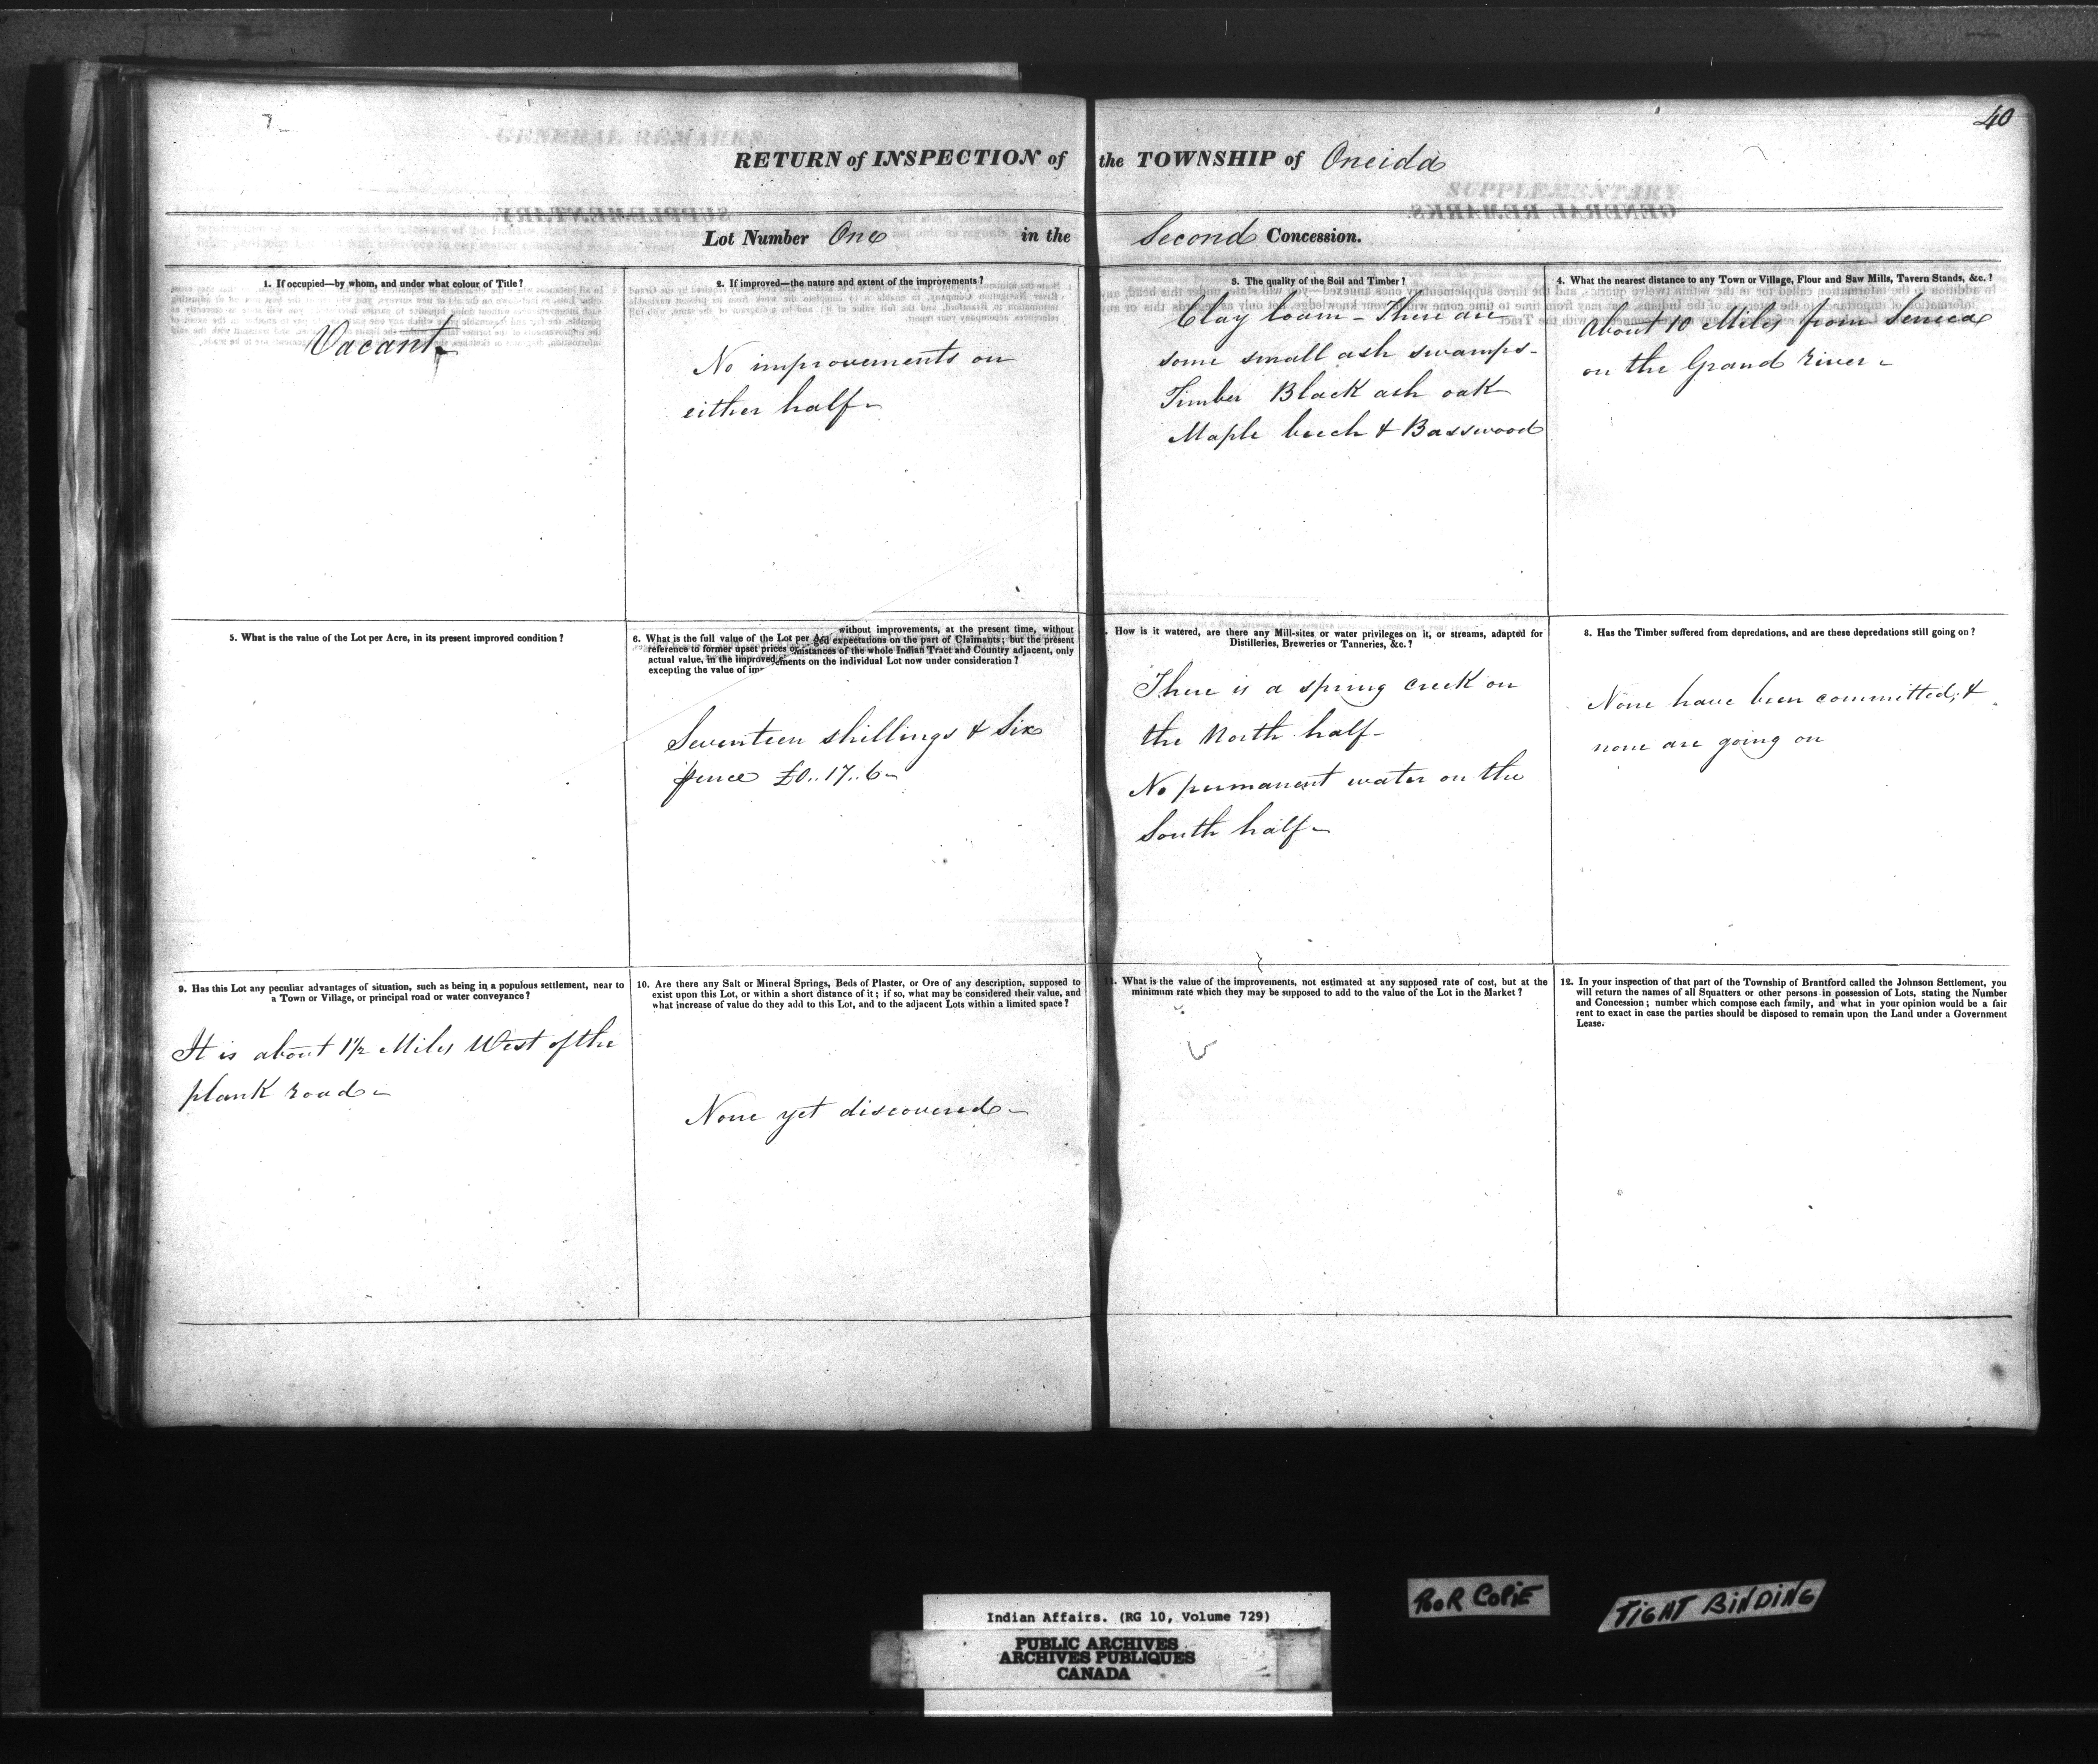 7
40
RETURN of INSPECTION of the TOWNSHIP of Oneida
Lot Number One in the Second Concession.
1. If occupied—by whom, and under what colour of Title?
Vacant
2. If improved—the nature and extent of the improvements?
No improvements on
either half
3. The quality of the Soil and Timber?
Clay loam - There are
some small ash swamps -
Timber Black ash oak
Maple beech & Basswood
4. What the nearest distance to any Town or Village, Flour and Saw Mills, Tavern Stands, &c.?
About 10 Miles from Seneca
on the Grand River -
5. What is the value of the Lot per Acre, in its present improved condition?
6. What is the full value of the Lot per Acre without improvements, at the present time, without
reference to former upset prices or expectations on the part of Claimants; but the present
actual value, in the improved circumstances of the whole Indian Tract and Country adjacent, only
excepting the value of improvements on the individual Lot now under consideration?
Seventeen shillings & Six
pence £0..17..6-
How is it watered, are there any Mill-sites or water privileges on it, or streams, adapted for
Distilleries, Breweries or Tanneries, &c.?
There is a spring creek on
the North half -
No permanent water on the
South half -
8. Has the Timber suffered from depredations, and are these depredations still going on?
None have been committed, &
none are going on
9. Has this Lot any peculiar advantages of situation, such as being in a populous settlement, near to
a Town or Village, or principal road or water conveyance?
It is about 1½ Miles West of the
plank road -
10. Are there any Salt or Mineral Springs, Beds of Plaster, or Ore of any description, supposed to
exist upon this Lot, or within a short distance of it; if so, what may be considered their value, and
what increase of value do they add to this Lot, and to the adjacent Lots within a limited space?
None yet discovered -
11. What is the value of the improvements, not estimated at any supposed rate of cost, but at the
minimum rate which they may be supposed to add to the value of the Lot in the Market?
12. In your inspection of that part of the Township of Brantford called the Johnson Settlement, you
will return the names of all Squatters or other persons in possession of Lots, stating the Number
and Concession; number which compose each family, and what in your opinion would be a fair
rent to exact in case the parties should be disposed to remain upon the Land under a Government
Lease.
Indian Affairs. (RG 10, Volume 729)
PUBLIC ARCHIVES
ARCHIVES PUBLIQUES
CANADA
POOR COPIE
TIGHT BINDING